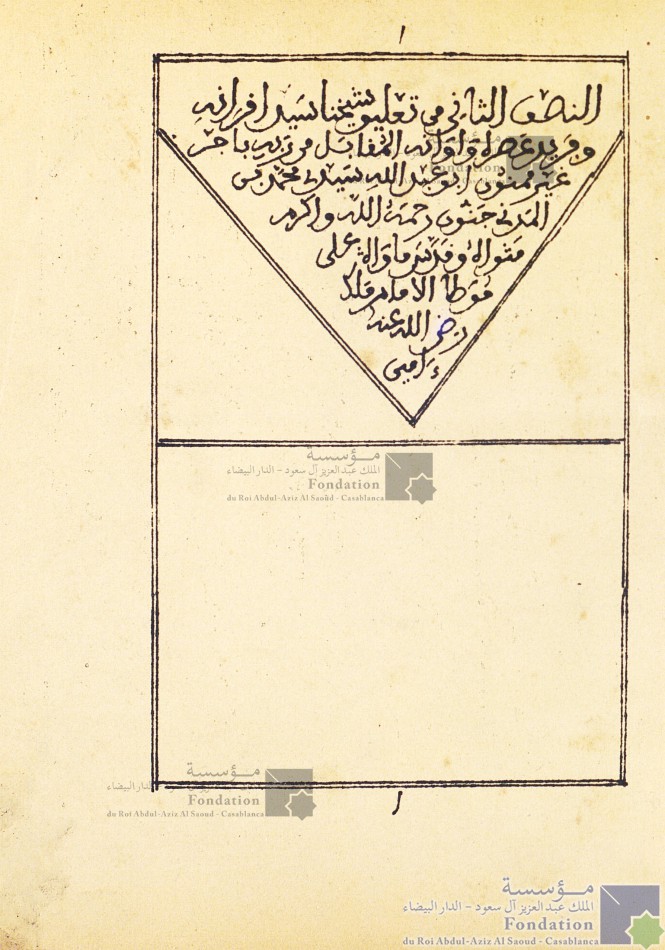 النصف الثاني من تعليق شيخنا سيد اقرانه
وفريد عصره واوانه المقابل من ربه باجر
غير ممنون ابو عبد الله سيدي محمد بن
المدني جنون رحمه الله واكرم
مثواه وقدس ماواه على
موطا الامام ملك
رضي الله عنه
ءامين
مؤسسة
الملك عبد العزيز آل سعود - الدار البيضاء
Fondation
du Roi Abdul-Aziz Al Saoud - Casablanca
مؤسسة
الدار البيضاء
Fondation
du Roi Abdul-Aziz Al Saoud - Casablanca
مؤسسة
الملك عبد العزيز آل سعود - الدار البيضاء
Fondation
du Roi Abdul-Aziz Al Saoud - Casablanca